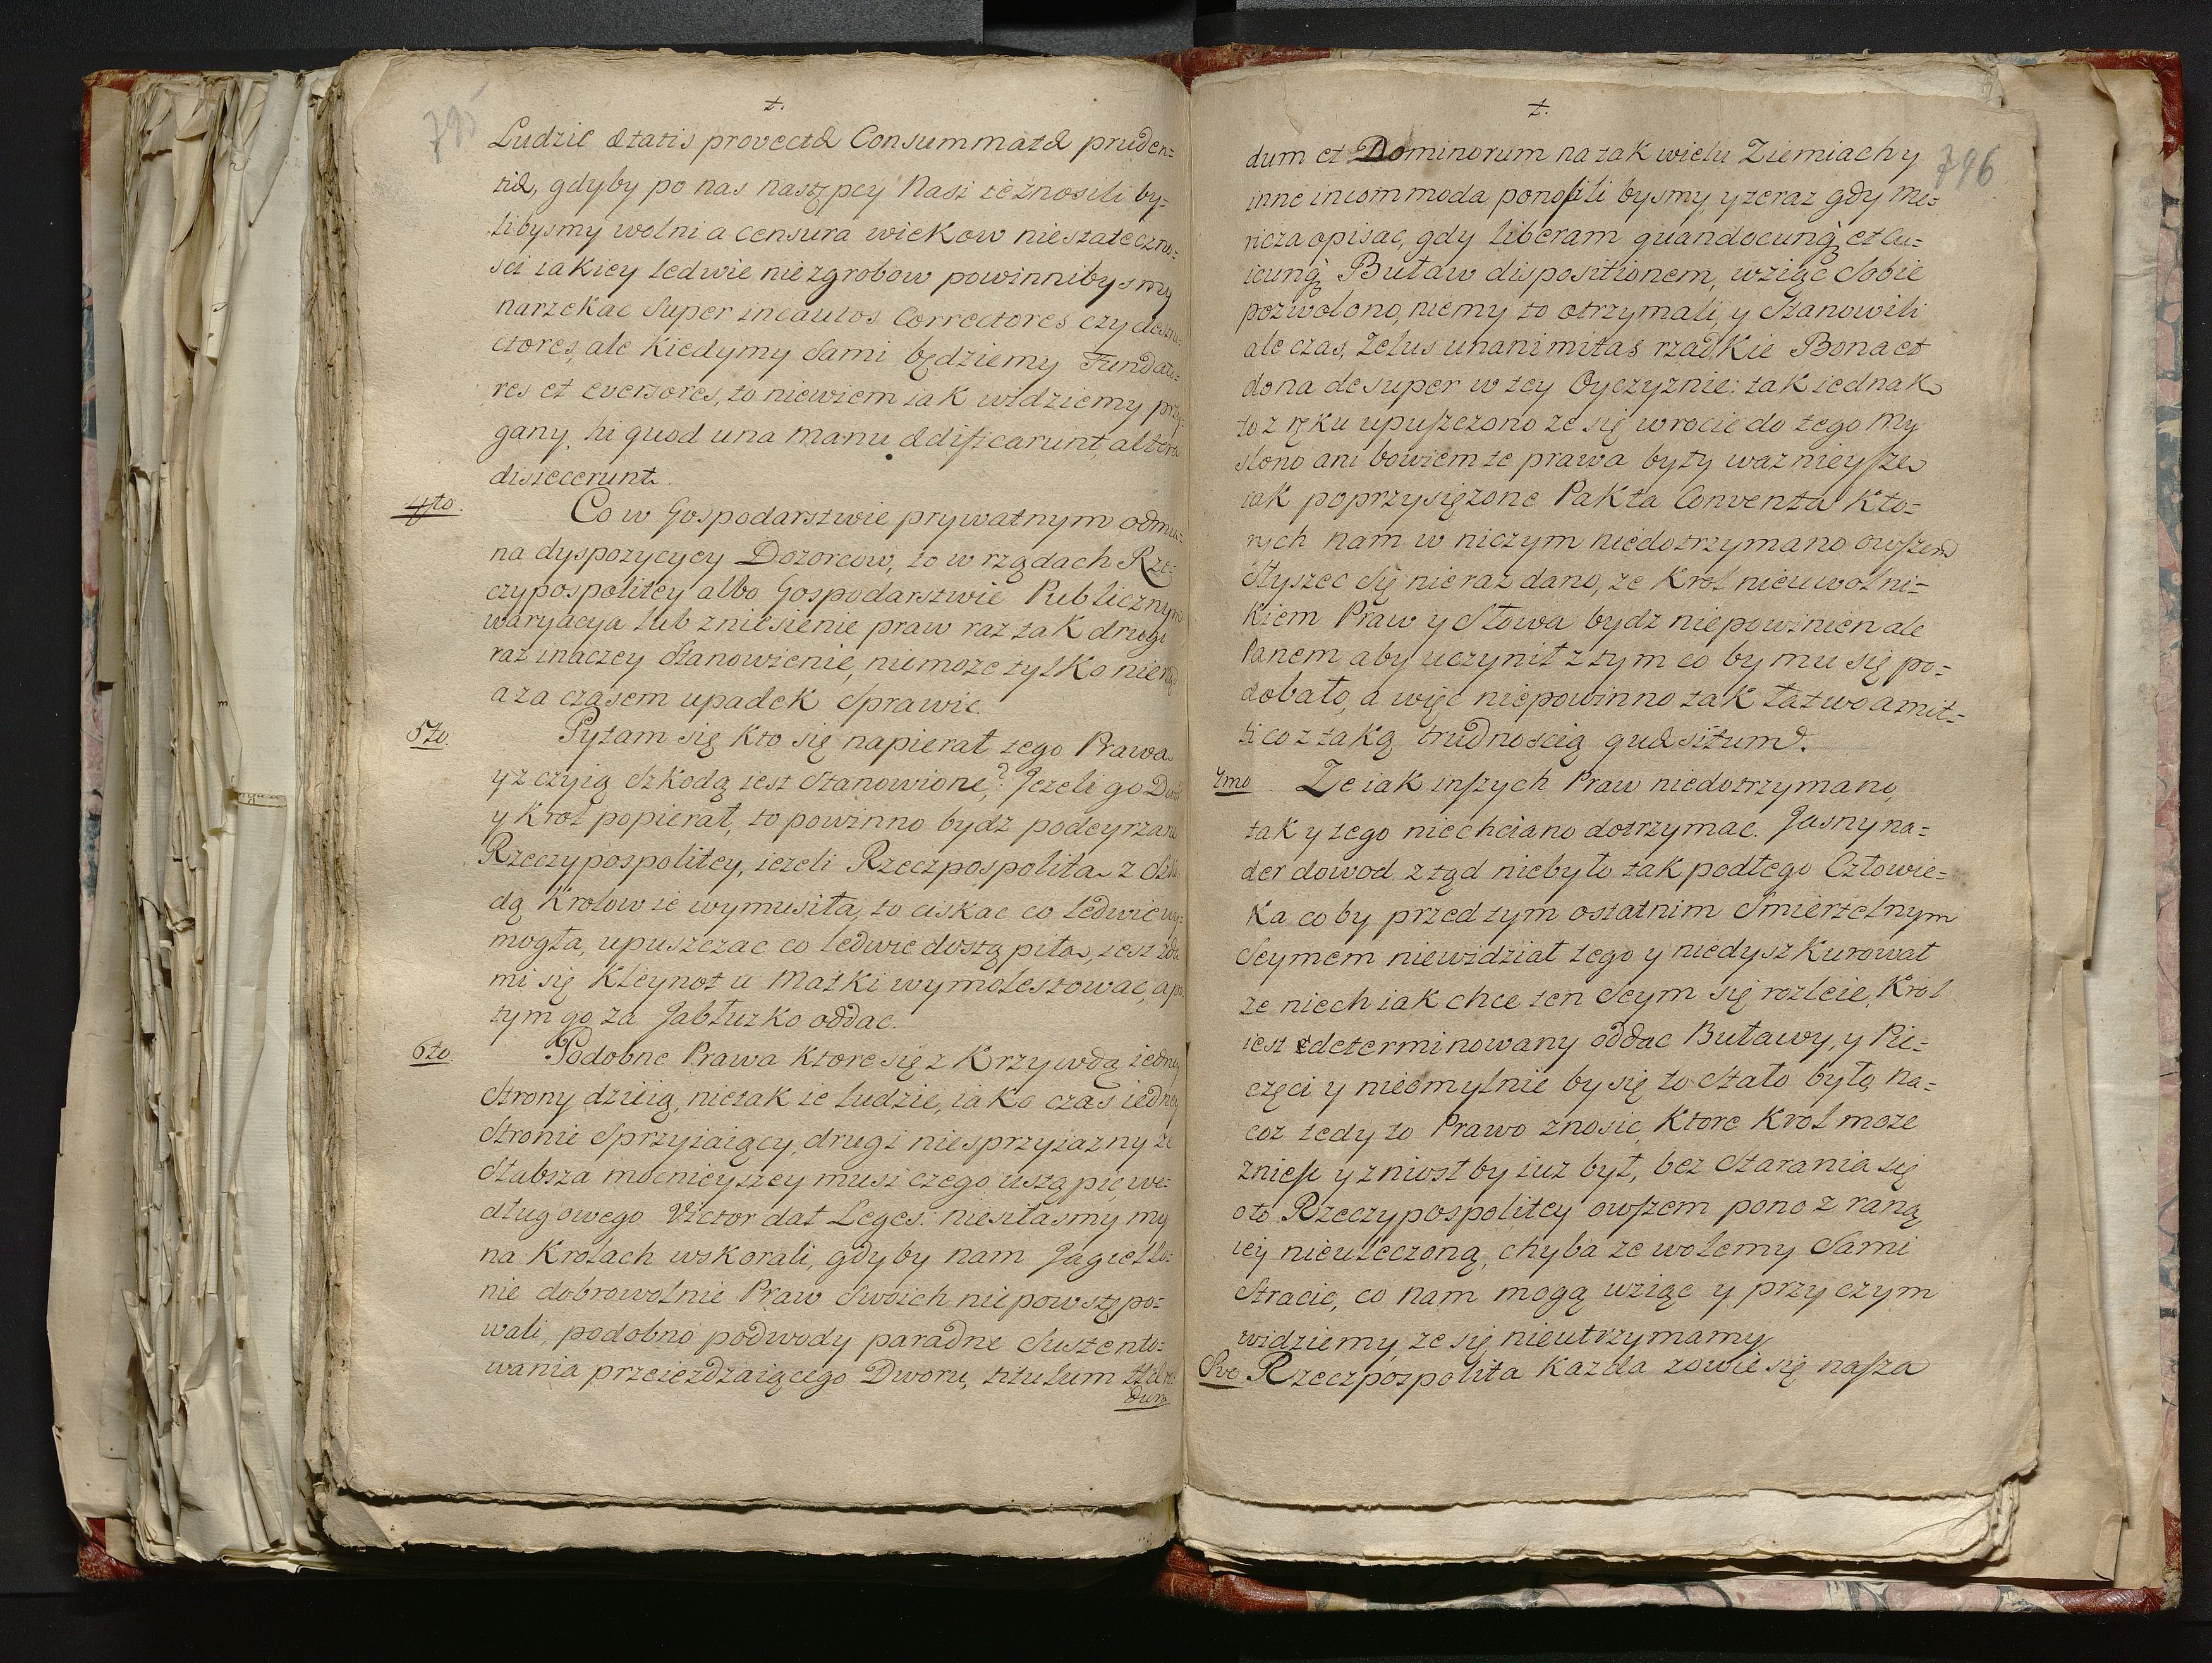 795
t.
Ludzie ætatis provectæ Consummatæ pruden=
tiæ, gdyby po nas następcy Nasi ie znosili by=
libysmy wolni a censura wiekow niestateczno=
sci iakiey ledwie nie z grobow powinnibysmy
narzekac Super incautos Correctores czy
ctores, ale kiedy my Sami będziemy Fundato=
res et eversores, to niewiem iak widziemy przy=
gany, hi quod una manu ædificarunt, altera
disiecerunt.
4to. Co w Gospodarstwie prywatnym odmia=
na dyspozycyey Dozorcow, to w rządach Rze=
czypospolitey albo Gospodarstwie Publicznym
waryacya lub zniesienie praw raz tak drugi
raz inaczey Stanowienie, niemoze tylko nierząd
a za czasem upadek Sprawic.
5to. Pytam się kto się napierał tego Prawa
y z czyią Szkodą iest Stanowione? Jezeli go Dwor
y Krol popierał, to powinno bydz podeyrzane
Rzeczypospolitey, iezeli Rzeczpospolita z Szko=
dą Krolow ie wymusiła, to ciskac co ledwie wy=
mogła, upuszczac co ledwie dostąpiła, iest zda
mi się Kleynot u Matki wymolestowac, a po
tym go za Jabłuzko oddac.
6to. Podobne Prawa ktore się z Krzywdą iedney
Strony dzieią, nie tak ie ludzie, iako czas iedney
Stronie Sprzyiaiący, drugi niesprzyiazny ze
Słabsza mocnieyszey musi czego ustąpic, we=
dług owego Victor dat Leges. niesiłasmy my
na Krolach wskorali, gdyby nam Jagiello=
nie dobrowolnie Praw Swoich niepowstępo=
wali, podobno podwody paradne Sustento=
wania przeiezdzaiącego Dworu, titulum Hære
dum
796
t.
dum et Dominorum na tak wielu Ziemiach y
inne incommoda ponosili bysmy, y teraz gdy me=
ricza opisac, gdy liberam quandocunq; et cu=
icunq; Buław dispositionem, wziąc Sobie
pozwolono, nie my to otrzymali, y Stanowili
ale czas, Zelus unanimitas rzadkie Bona et
dona desuper w tey Oyczyznie: tak iednak
to z ręku upuszczono ze się wrocic do tego my
slono ani bowiem te prawa były waznieysze
iak poprzysięzone Pakta Conventa kto=
rych nam w niczym niedotrzymano owszem
Słyszec się nieraz dano, ze Krol nieuwolni=
kiem Praw y Słowa bydz niepowinien ale
Panem aby uczynił z tym co by mu się po=
dobało, a więc niepowinno tak łatwo amit=
ti co z taką trudnoscią quæsitum.
7mo Ze iak inszych Praw niedotrzymano,
tak y tego niechciano dotrzymac. Jasny na=
der dowod ztąd niebyło tak podłego Człowie=
ka co by przed tym ostatnim Smiertelnym
Seymem niewidział tego y niedyszkurował
ze niech iak chce ten Seym się rozleie, Krol
iest determinowany oddac Buławy, y Pie=
częci y nieomylnie by się to Stało było, na=
coz tedy to Prawo znosic, ktore Krol moze
zniesc y zniosł by iuz był, bez Starania się
o to Rzeczypospolitey owszem pono z raną
iey nieuleczoną, chyba ze wolemy Sami
Stracic, co nam mogą wziąc y przy czym
widziemy, ze się nieutrzymamy
8vo Rzeczpospolita kazda zowie się nasza